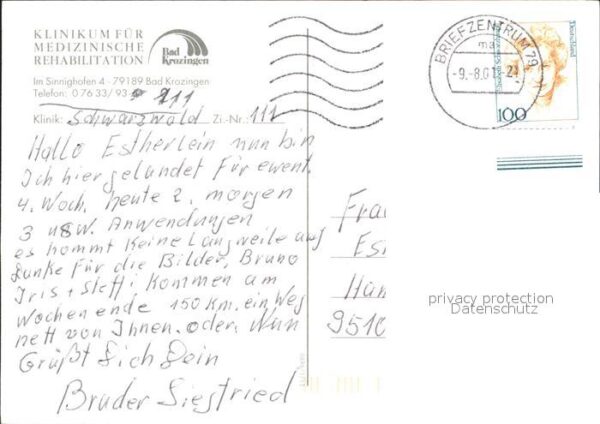 KLINIKUM FÜR
MEDIZINISCHE
REHABILITATION
Bad
Krozingen
Im Sinnighofen 4 - 79189 Bad Krozingen
Telefon: 0 76 33 / 93- 211
Klinik: Schwarzwald Zi.-Nr.: 111
Hallo Estherlein nun bin
Ich hier gelandet für event.
4. Woch. heute 2. morgen
3 usw. Anwendungen
es kommt keine Langweile auf
danke für die Bilder, Bruno
Iris + Steffi kommen am
Wochenende 150 Km. ein Weg
nett von Ihnen. oder. Nun
Grüßt Dich Dein
Bruder Siegfried
BRIEFZENTRUM 79
ma
-9.-8.01-21
100
Frau
Es
Han
9510
privacy protection
Datenschutz